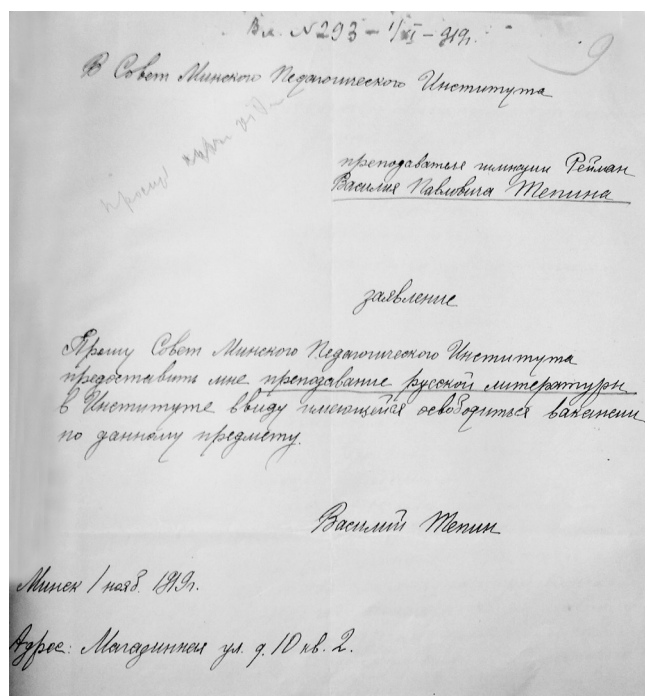 Вх. №293 – 1/XI – 919г.
9
В Совет Минского Педагогического Института
прошу
преподавателя гимназии Рейман
Василия Павловича Тепина
заявление
Прошу Совет Минского Педагогического Института
предоставить мне преподавание русской литературы
в Институте ввиду имеющейся освободиться вакансии
по данному предмету.
Василий Тепин
Минск 1 нояб. 1919г.
Адрес: Магазинная ул. д. 10 кв. 2.